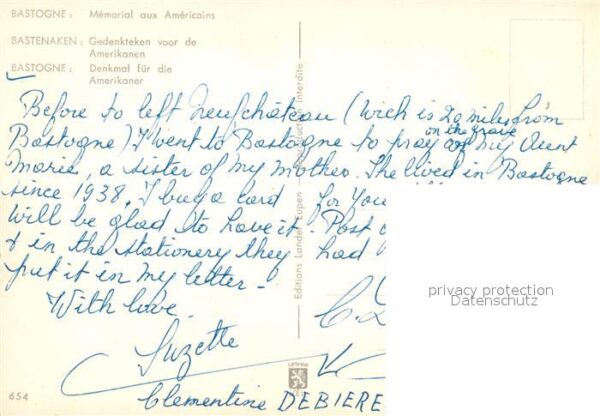 BASTOGNE : Mémorial aux Américains
BASTENAKEN : Gedenkteken voor de
Amerikanen
BASTOGNE : Denkmal für die
Amerikaner
Before to left Neufchâteau (wich is 20 miles from
Bastogne) I went to Bastogne to pray on the grave of my Aunt
Marie, a sister of my mother. She lived in Bastogne
since 1938. I buy a card for you
will be glad to have it. Post
& in the stationery they had
put it in my letter -
With love.
Suzette
Clementine DEBIERE
Editions Lander Eupen
interdite
privacy protection
Datenschutz
654